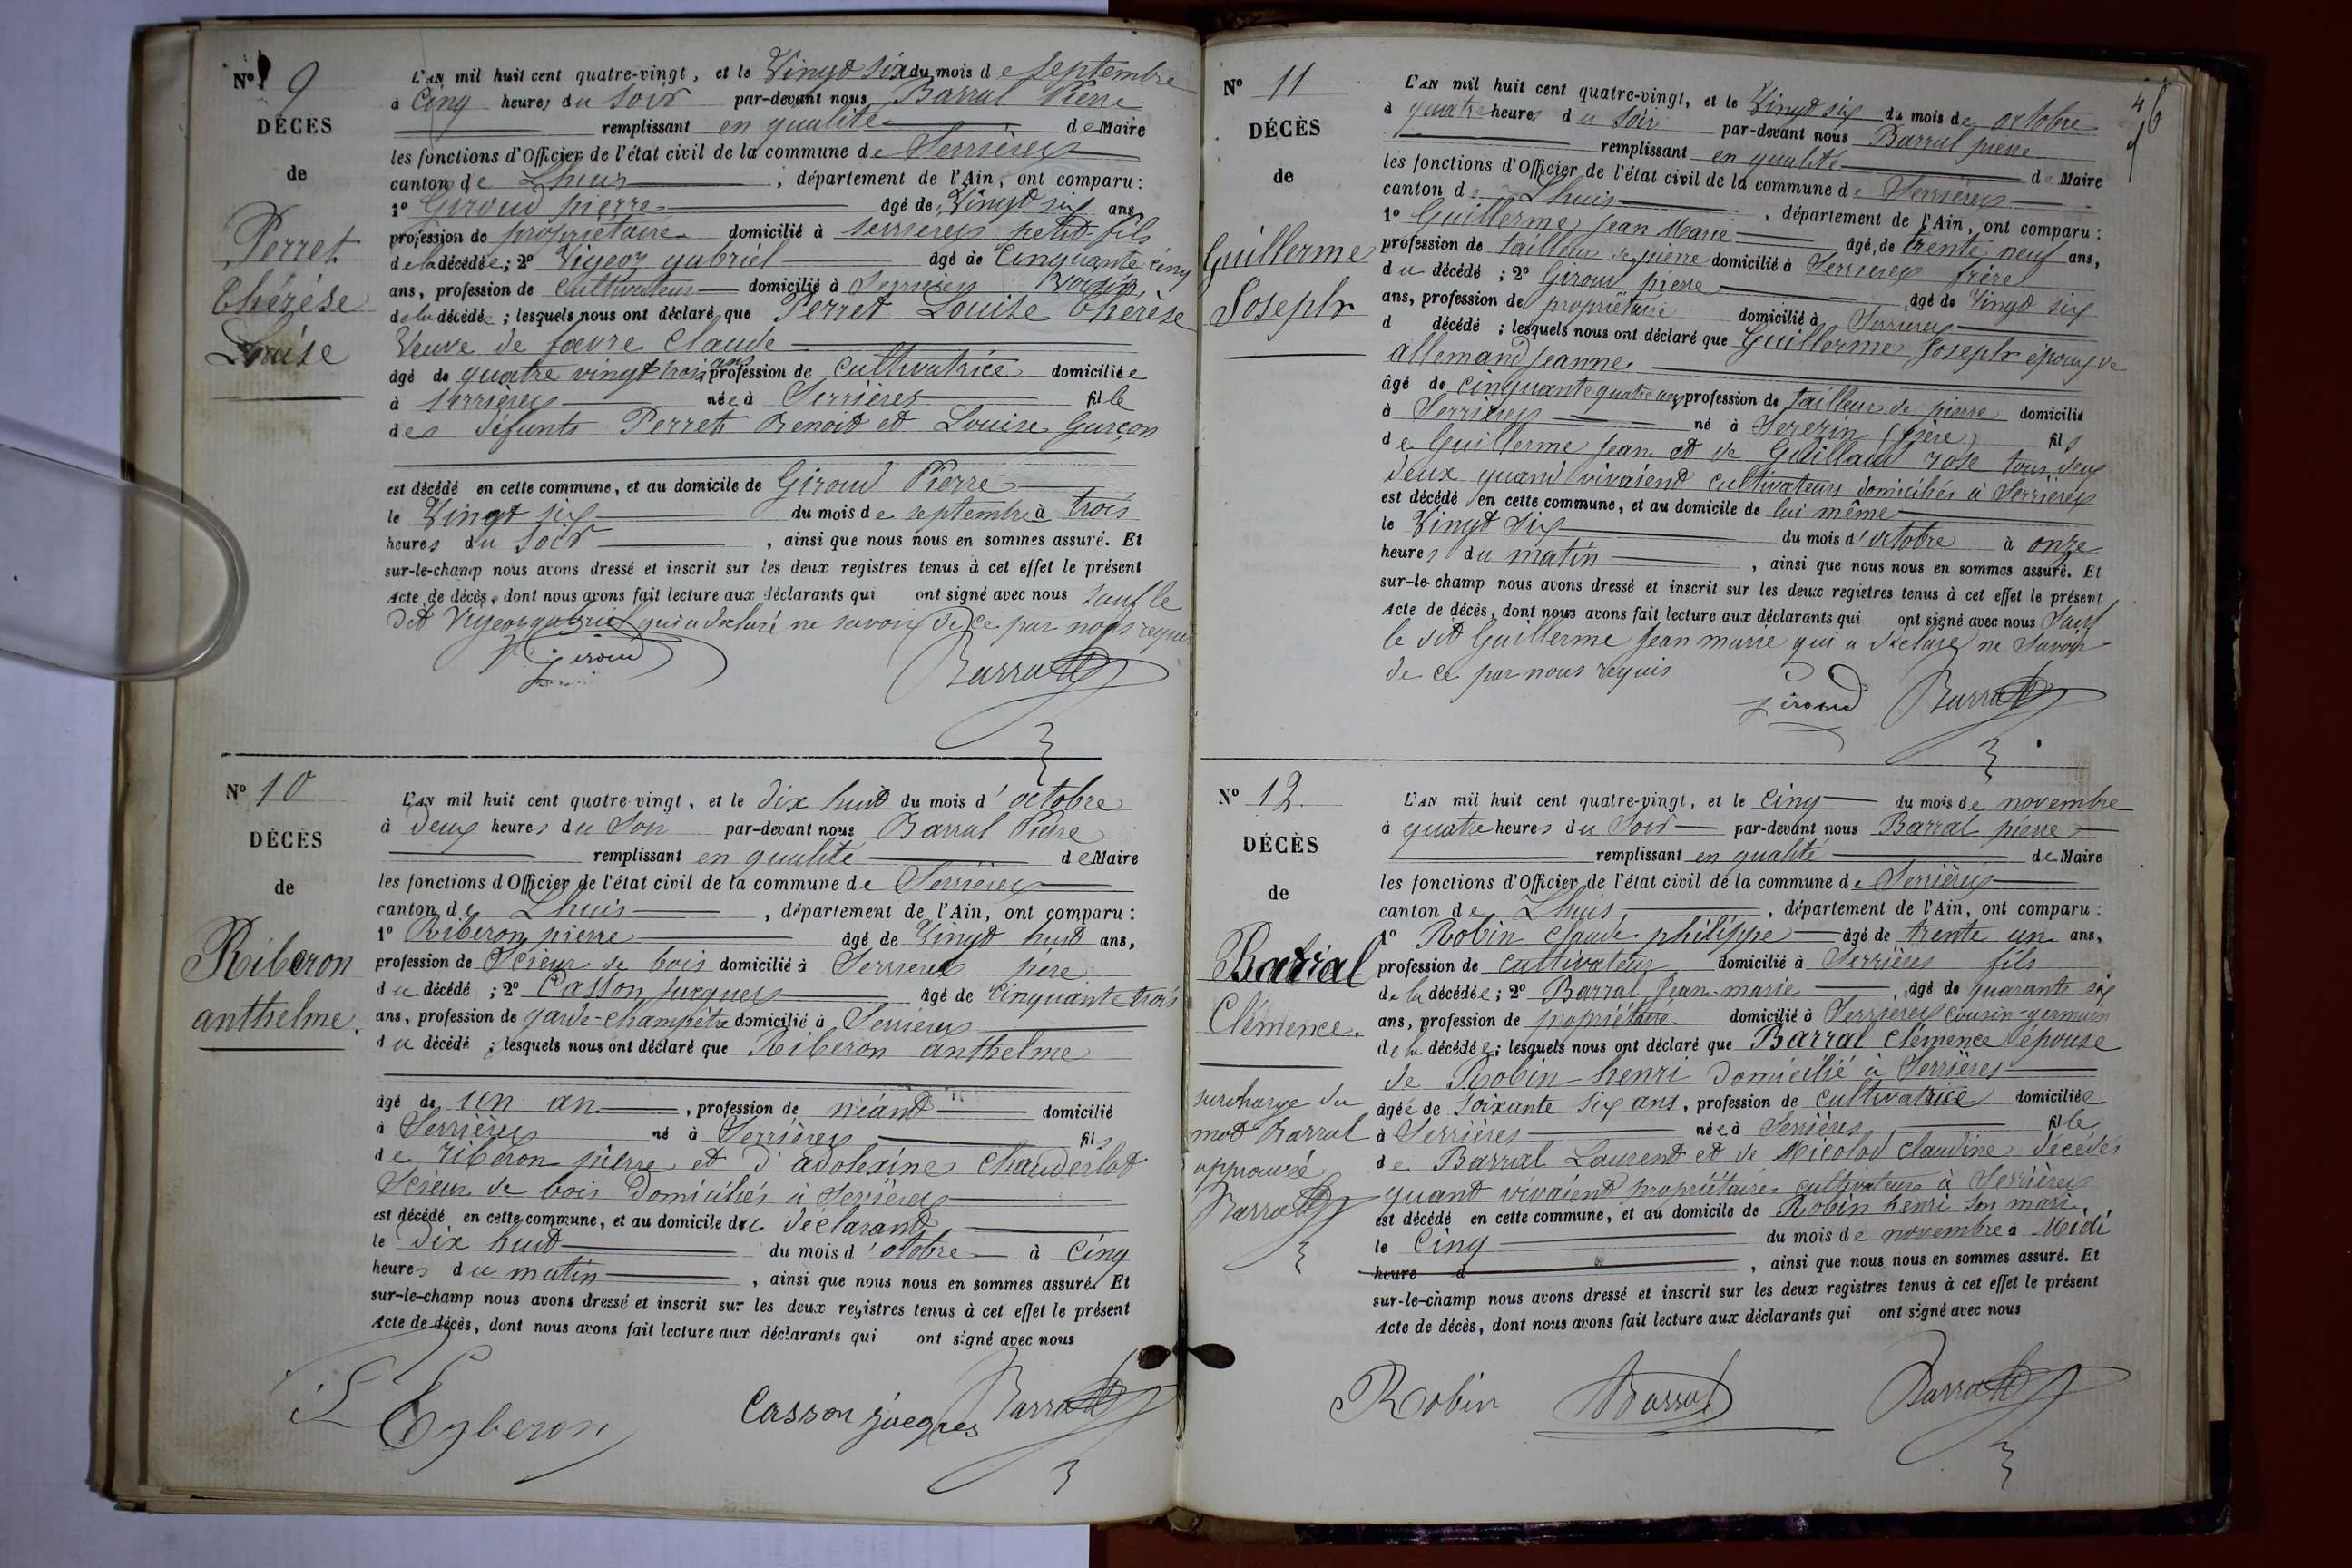 N° 9
DÉCÈS
de
Perret
Thérèse
Louise
L'AN mil huit cent quatre-vingt, et le Vingt six du mois de septembre
à Cinq heures du Soir par-devant nous Barral Pierre
remplissant en qualité de Maire
les fonctions d'Officier de l'état civil de la commune de Serrières
canton de Lhuis, département de l'Ain, ont comparu :
1° Giroud pierre âgé de Vingt six ans
profession de propriétaire domicilié à serrières petit fils
de la décédée ; 2° Vigeoz gabriel âgé de Cinquante cinq
ans, profession de Cultivateur domicilié à Serrières Voisin
de la décédée ; lesquels nous ont déclaré que Perret Louise Thérèse
Veuve de foevre Claude
âgé de quatre vingt trois ans profession de cultivatrice domiciliée
à Serrières née à Serrières fille
des défunts Perret Benoit et Louise Garçon
est décédé en cette commune, et au domicile de Giroud Pierre
le Vingt six du mois de septembre à trois
heures du Soir, ainsi que nous nous en sommes assuré. Et
sur-le-champ nous avons dressé et inscrit sur les deux registres tenus à cet effet le présent
Acte de décès, dont nous avons fait lecture aux déclarants qui ont signé avec nous sauf le
dit Vigeoz gabriel qui a déclaré ne savoir de ce par nous requis
Giroud Barral
N° 10
DÉCÈS
de
Riberon
anthelme.
L'AN mil huit cent quatre-vingt, et le dix huit du mois d'octobre
à Deux heures du Soir par-devant nous Barral Pierre
remplissant en qualité de Maire
les fonctions d'Officier de l'état civil de la commune de Serrières
canton de Lhuis, département de l'Ain, ont comparu :
1° Riberon pierre âgé de Vingt huit ans,
profession de Scieur de bois domicilié à Serrieres père
du décédé ; 2° Casson jacques âgé de Cinquante trois
ans, profession de garde-champêtre domicilié à Serrieres
du décédé ; lesquels nous ont déclaré que Riberon anthelme
âgé de un an, profession de néant domicilié
à Serrières né à Serrières fils
de riberon pierre et d'adolexine Chauderlot
Scieur de bois Domiciliés à Serrières
est décédé en cette commune, et au domicile du déclarant
le Dix huit du mois d'otobre à Cinq
heures du matin, ainsi que nous nous en sommes assuré. Et
sur-le-champ nous avons dressé et inscrit sur les deux registres tenus à cet effet le présent
Acte de décès, dont nous avons fait lecture aux déclarants qui ont signé avec nous
Casson jacques Barral
N° 11
46
DÉCÈS
de
Guillerme
Joseph
L'AN mil huit cent quatre-vingt, et le Vingt six du mois de octobre
à quatre heures du Soir par-devant nous Barral pierre
remplissant en qualité de Maire
les fonctions d'Officier de l'état civil de la commune de Serrières
canton de Lhuis, département de l'Ain, ont comparu :
1° Guillerme Jean Marie âgé de trente neuf ans,
profession de tailleur de pierre domicilié à Serrieres frère
du décédé ; 2° Giroud pierre âgé de Vingt six
ans, profession de propriétaire domicilié à Serrieres
d décédé ; lesquels nous ont déclaré que Guillerme Joseph époux de
allemand Jeanne
âgé de cinquante quatre ans profession de tailleur de pierre domicilié
à Serrières né à Serezin (isère) fils
de Guillerme Jean et de Guillaud rose tous deux
deux quand vivaient cultivateurs domiciliés à Serrières
est décédé en cette commune, et au domicile de lui même
le Vingt Six du mois d'octobre à onze
heures du matin, ainsi que nous nous en sommes assuré. Et
sur-le-champ nous avons dressé et inscrit sur les deux registres tenus à cet effet le présent
Acte de décès, dont nous avons fait lecture aux déclarants qui ont signé avec nous Sauf
le dit Guillerme Jean marie qui a déclaré ne Savoir
de ce par nous requis
Giroud Barral
N° 12.
DÉCÈS
de
Barral
Clémence.
surcharge du
mot Barral
approuvée
Barral
L'AN mil huit cent quatre-vingt, et le Cinq du mois de novembre
à quatre heures du Soir par-devant nous Barral pierre
remplissant en qualité de Maire
les fonctions d'Officier de l'état civil de la commune de Serrières
canton de Lhuis, département de l'Ain, ont comparu :
1° Robin Claude philippe âgé de trente un ans,
profession de cultivateur domicilié à Serrières fils
de la décédée ; 2° Barral Jean-marie, âgé de quarante six
ans, profession de propriétaire domicilié à Serrieres cousin-germain
de la décédée ; lesquels nous ont déclaré que Barral Clémence épouse
de Robin henri Domicilié à Serrières
âgée de Soixante six ans, profession de cultivatrice domiciliée
à Serrières née à Serrières fille
de Barral Laurent et de Nicolod Claudine décédés
quant vivaient propriétaires cultivateurs à Serrières
est décédé en cette commune, et au domicile de Robin henri son mari.
le Cinq du mois de novembre à Midi
heure d, ainsi que nous nous en sommes assuré. Et
sur-le-champ nous avons dressé et inscrit sur les deux registres tenus à cet effet le présent
Acte de décès, dont nous avons fait lecture aux déclarants qui ont signé avec nous
Robin Barral Barral